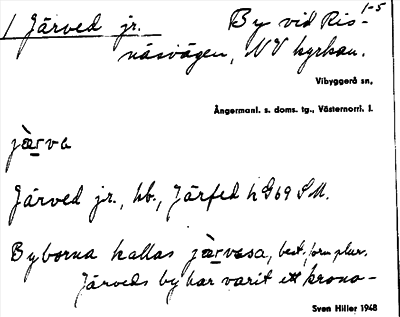 1 Järved jr. By vid Ris- 1-5
näsvägen, NV kyrkan.
Vibyggerå sn,
Ångermanl. s. doms. tg., Västernorrl. l.
jàrva
Järved jr., hb., Järfed h G69 SM.
Byborna kallas jàrvasa, best. form plur.
Järveds by har varit ett krono-
Sven Hiller 1948